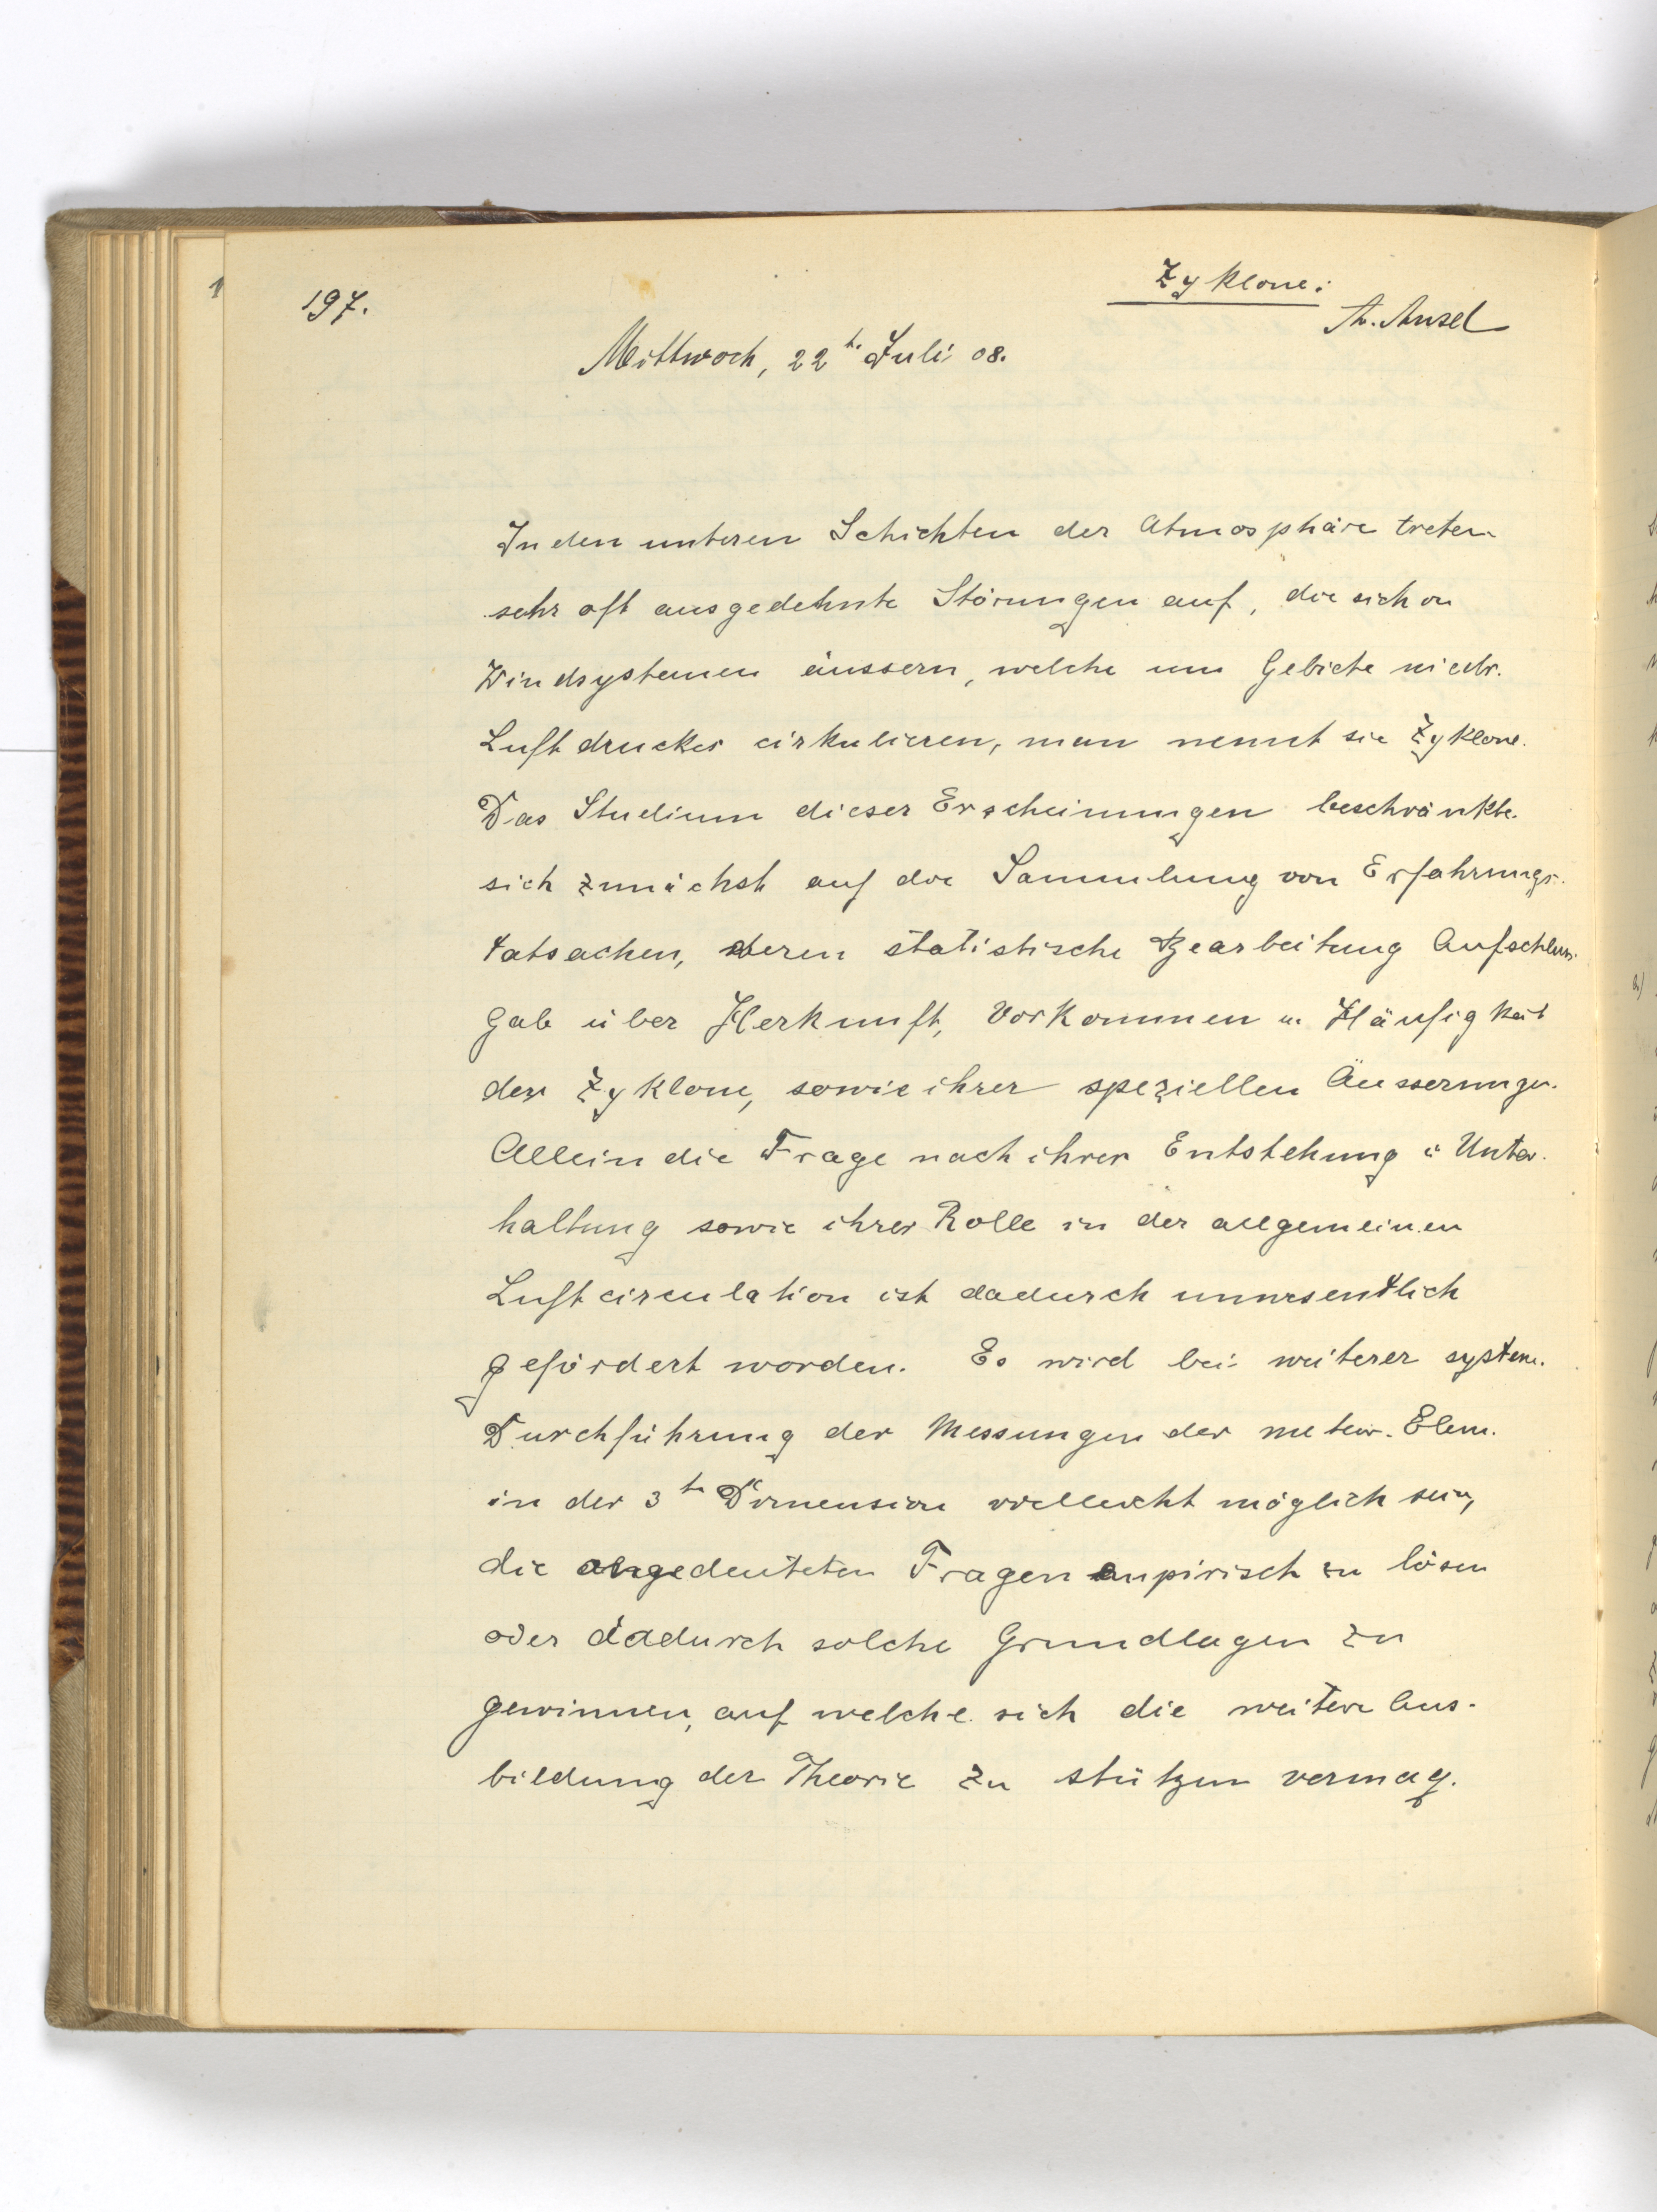 197.
Zyklone:
A. Ansel
Mittwoch, 22t. Juli 08.
In den unteren Schichten der Atmosphäre treten
sehr oft ausgedehnte Störungen auf, die sich in
Windsystemen äussern, welche um Gebiete niedr.
Luftdruckes cirkulieren, man nennt sie Zyklone.
Das Studium dieser Erscheinungen beschränkte
sich zunächst auf die Sammlung von Erfahrungs-
tatsachen, deren statistische Bearbeitung Aufschluss
gab über Herkunft, Vorkommen u. Häufigkeit
der Zyklone, sowie ihrer speziellen Äusserungen.
Allein die Frage nach ihrer Entstehung u. Unter-
haltung sowie ihrer Rolle in der allgemeinen
Luftcirculation ist dadurch unwesentlich
gefördert worden. Es wird bei weiterer system.
Durchführung der Messungen der meteor. Elem.
in der 3t. Dimension vielleicht möglich sein,
die angedeuteten Fragen empirisch zu lösen
oder dadurch solche Grundlagen zu
gewinnen, auf welche sich die weitere Aus-
bildung der Theorie zu stützen vermag.